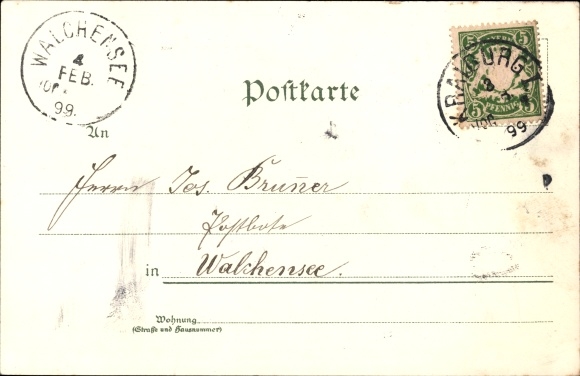 WALCHENSEE
4
FEB.
99.
5 5
KRAIBURG
PFENNIG
5 5
99
Postkarte
An
Herrn Jos. Brunner
Postbote
in Walchensee.
Wohnung
(Straße und Hausnummer)